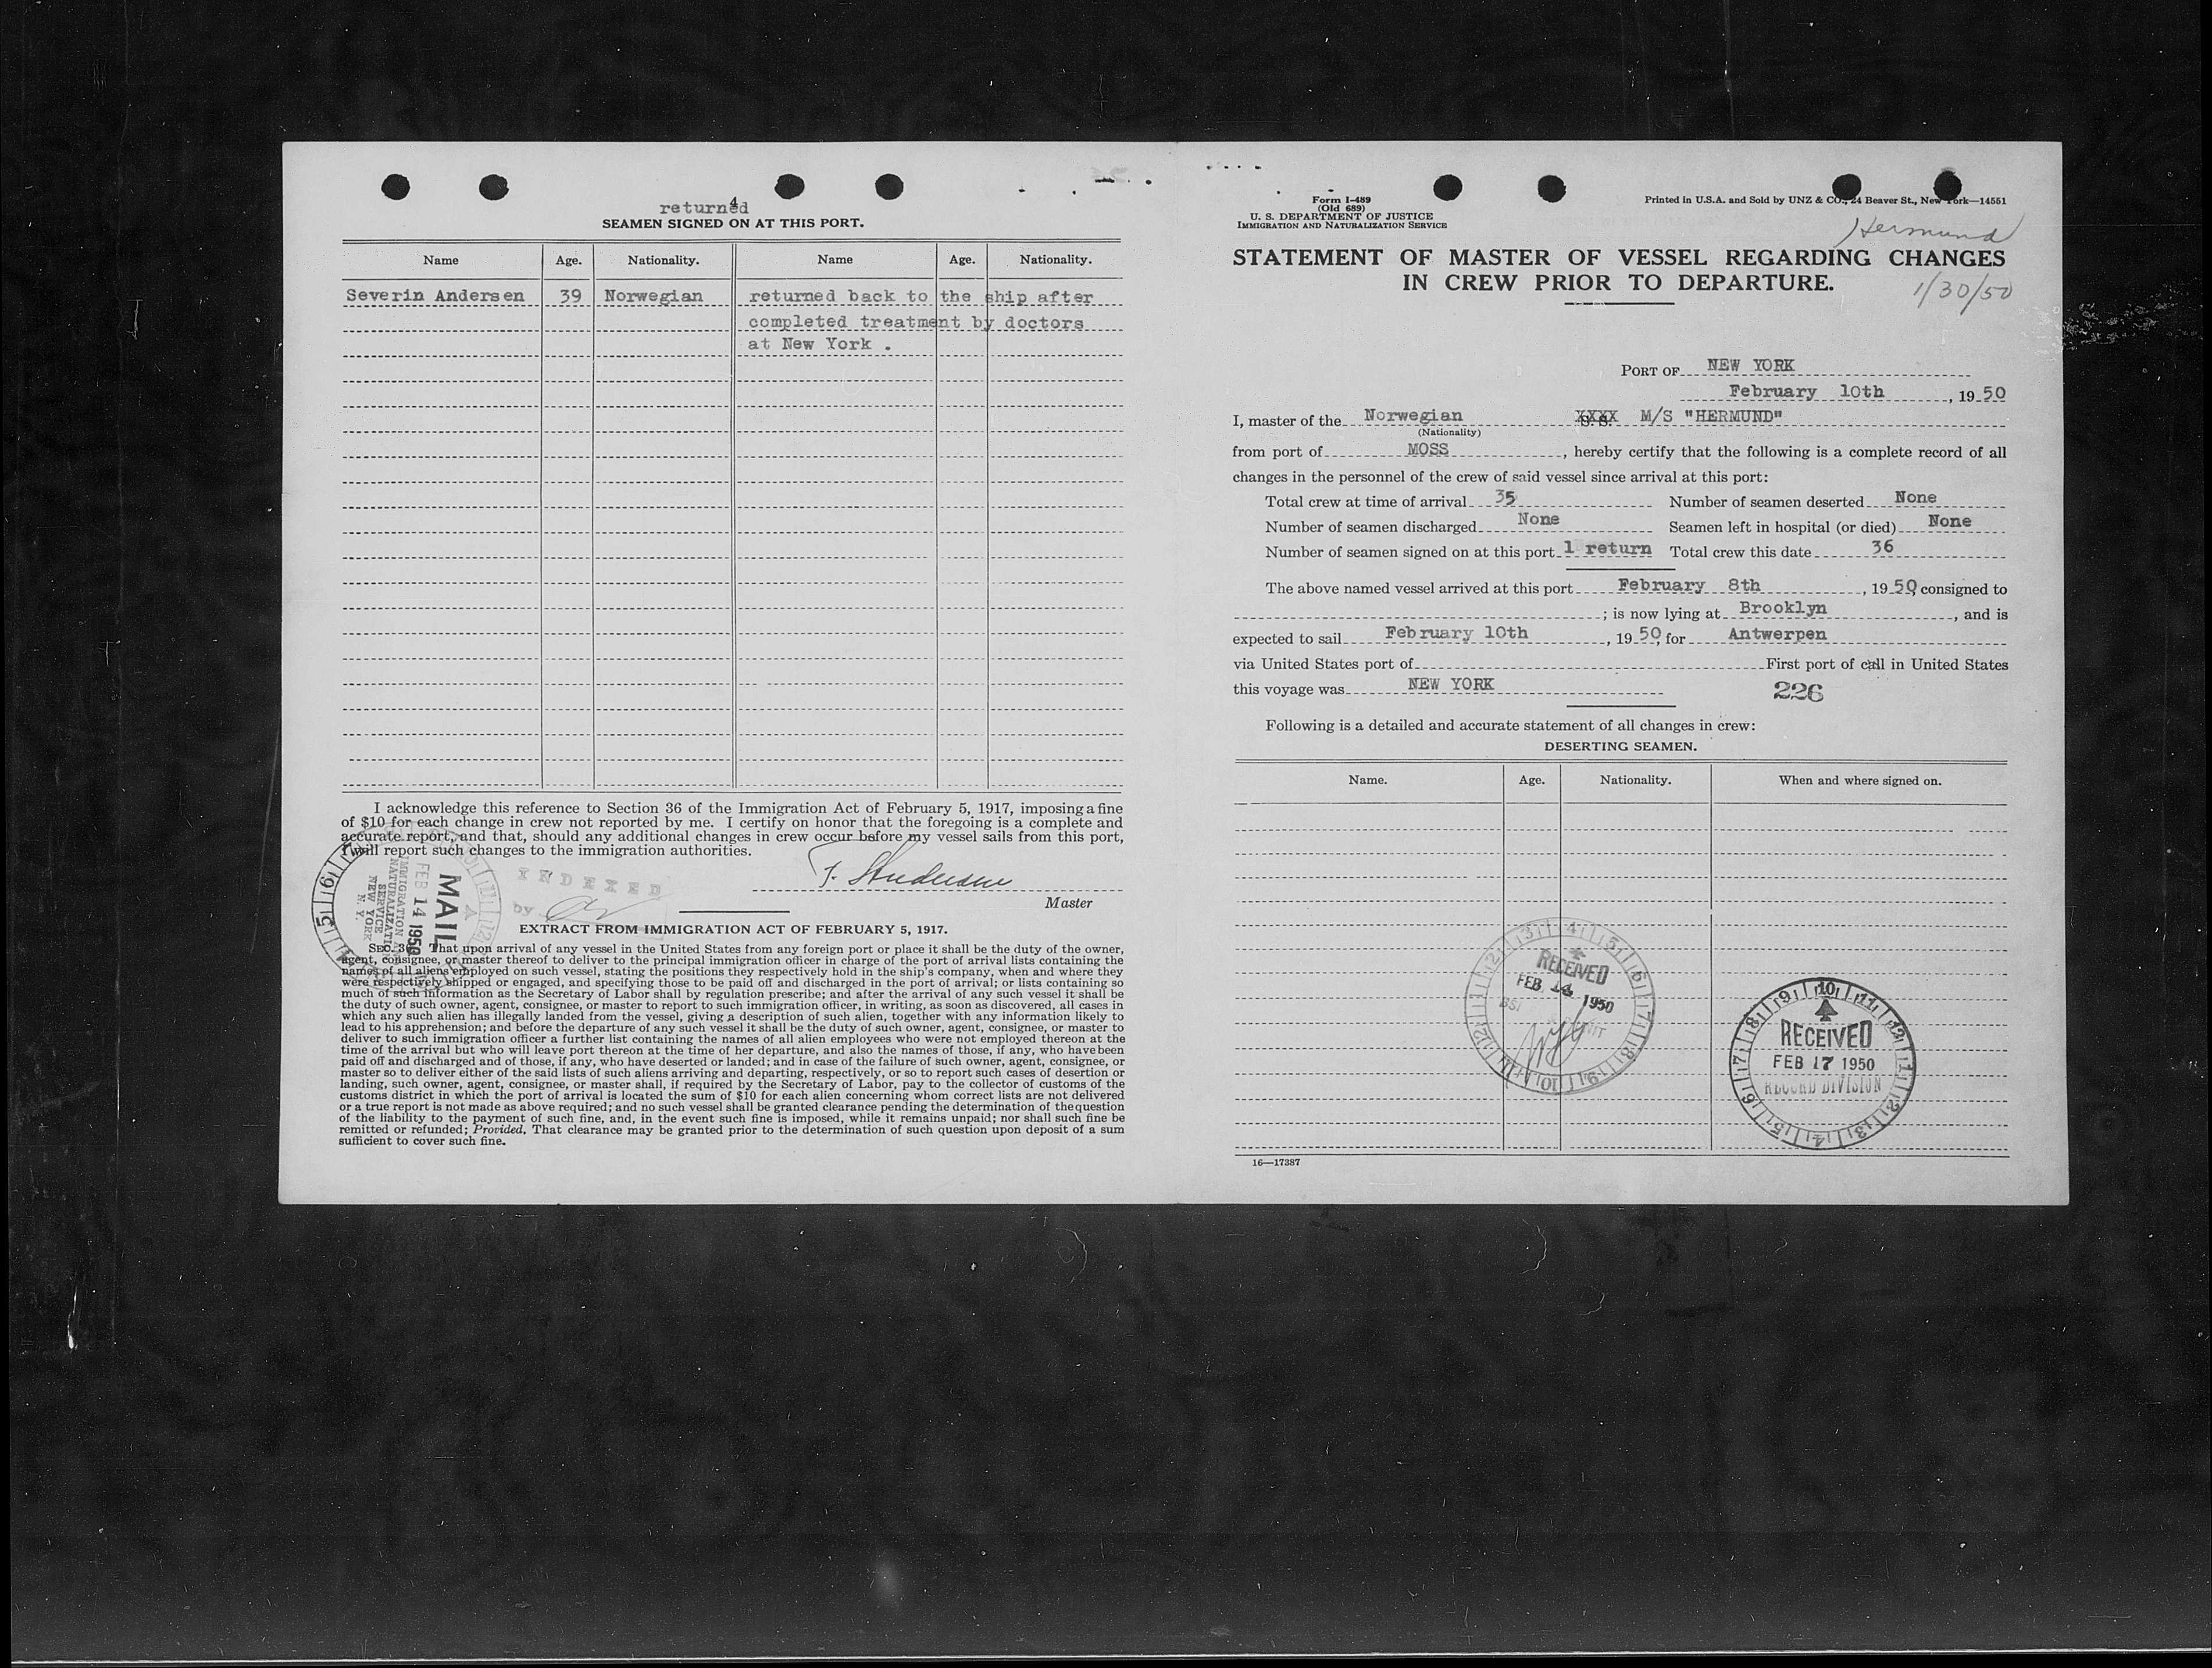 returned
4
SEAMEN SIGNED ON AT THIS PORT.
Name Age. Nationality. Name Age. Nationality.
Severin Andersen 39 Norwegian returned back to the ship after
completed treatment by doctors
at New York .
I acknowledge this reference to Section 36 of the Immigration Act of February 5, 1917, imposing a fine
of $10 for each change in crew not reported by me. I certify on honor that the foregoing is a complete and
accurate report, and that, should any additional changes in crew occur before my vessel sails from this port,
I will report such changes to the immigration authorities.
Master
INDEXED
by
MAIL
FEB 14 1950
IMMIGRATION
NATURALIZATION
SERVICE
NEW YORK
N. Y.
EXTRACT FROM IMMIGRATION ACT OF FEBRUARY 5, 1917.
SEC. 36. That upon arrival of any vessel in the United States from any foreign port or place it shall be the duty of the owner,
agent, consignee, or master thereof to deliver to the principal immigration officer in charge of the port of arrival lists containing the
names of all aliens employed on such vessel, stating the positions they respectively hold in the ship's company, when and where they
were respectively shipped or engaged, and specifying those to be paid off and discharged in the port of arrival; or lists containing so
much of such information as the Secretary of Labor shall by regulation prescribe; and after the arrival of any such vessel it shall be
the duty of such owner, agent, consignee, or master to report to such immigration officer, in writing, as soon as discovered, all cases in
which any such alien has illegally landed from the vessel, giving a description of such alien, together with any information likely to
lead to his apprehension; and before the departure of any such vessel it shall be the duty of such owner, agent, consignee, or master to
deliver to such immigration officer a further list containing the names of all alien employees who were not employed thereon at the
time of the arrival but who will leave port thereon at the time of her departure, and also the names of those, if any, who have been
paid off and discharged and of those, if any, who have deserted or landed; and in case of the failure of such owner, agent, consignee, or
master so to deliver either of the said lists of such aliens arriving and departing, respectively, or so to report such cases of desertion or
landing, such owner, agent, consignee, or master shall, if required by the Secretary of Labor, pay to the collector of customs of the
customs district in which the port of arrival is located the sum of $10 for each alien concerning whom correct lists are not delivered
or a true report is not made as above required; and no such vessel shall be granted clearance pending the determination of the question
of the liability to the payment of such fine, and, in the event such fine is imposed, while it remains unpaid; nor shall such fine be
remitted or refunded; Provided, That clearance may be granted prior to the determination of such question upon deposit of a sum
sufficient to cover such fine.
Form I-489
(Old 689)
U. S. DEPARTMENT OF JUSTICE
IMMIGRATION AND NATURALIZATION SERVICE
Printed in U.S.A. and Sold by UNZ & CO., 24 Beaver St., New York—14551
Hermund
STATEMENT OF MASTER OF VESSEL REGARDING CHANGES
IN CREW PRIOR TO DEPARTURE.
1/30/50
PORT OF NEW YORK
February 10th, 1950
I, master of the Norwegian XXXX M/S "HERMUND"
(Nationality)
from port of MOSS, hereby certify that the following is a complete record of all
changes in the personnel of the crew of said vessel since arrival at this port:
Total crew at time of arrival 35 Number of seamen deserted None
Number of seamen discharged None Seamen left in hospital (or died) None
Number of seamen signed on at this port 1 return Total crew this date 36
The above named vessel arrived at this port February 8th, 1950, consigned to
; is now lying at Brooklyn, and is
expected to sail February 10th, 1950, for Antwerpen
via United States port of First port of call in United States
this voyage was NEW YORK
226
Following is a detailed and accurate statement of all changes in crew:
DESERTING SEAMEN.
Name. Age. Nationality. When and where signed on.
RECEIVED
FEB 14 1950
BSI
RECEIVED
FEB 17 1950
RECORD DIVISION
16—17387